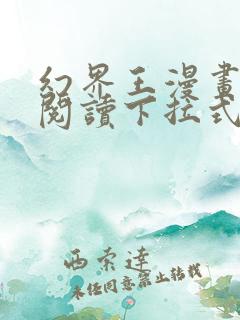 幻界王漫畫
閱讀下拉式
西索達
未經同意禁止轉載